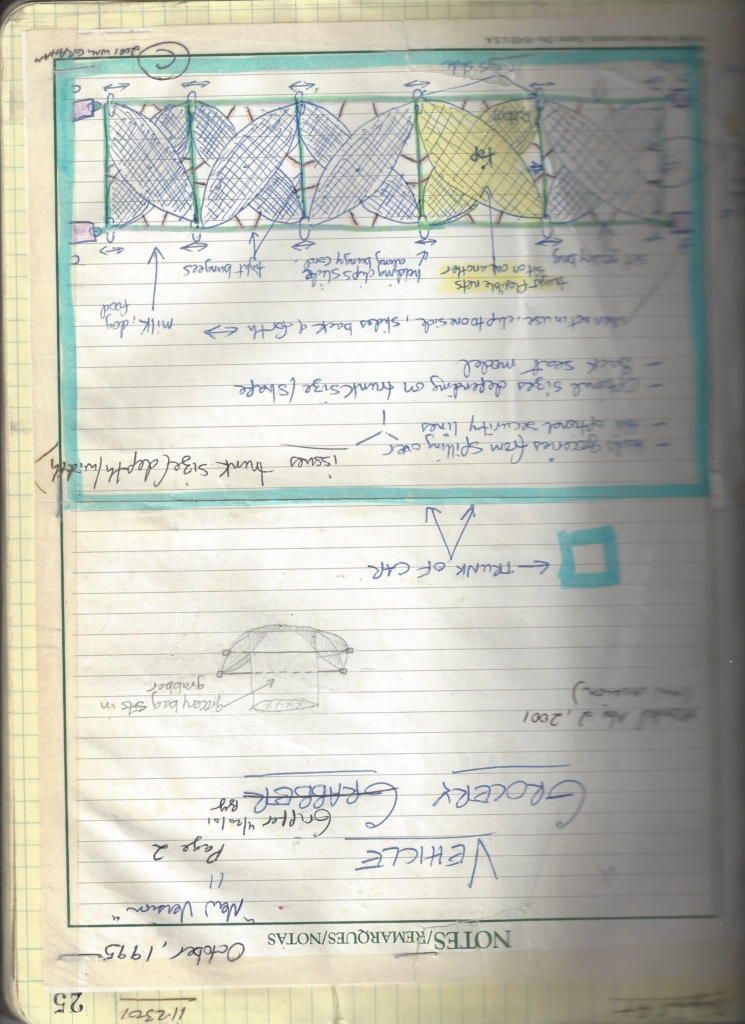 112301
25
NOTES/REMARQUES/NOTAS
October, 1995
"New Version"
"
Page 2
VEHICLE
Gripper 4/20/01
GROCERY GRABBER BY
Nov 2, 2001
version)
grocery bag sits in
grabber
← TRUNK OF CAR
issues trunk size (depth/width)
groceries from spilling over
- optional security lines
- Optional sizes depending on trunk size / shape
- Back seat model
when not in use, clip to one side, slides back & forth ↔
milk, dog
food
taught flexible nets
sit on one another
holding clips slide
along bungy cord.
tight bungees
set grocery bag
top
bottom
slide
C
C
© 2001 WM. GRAHAM
U.S.A.